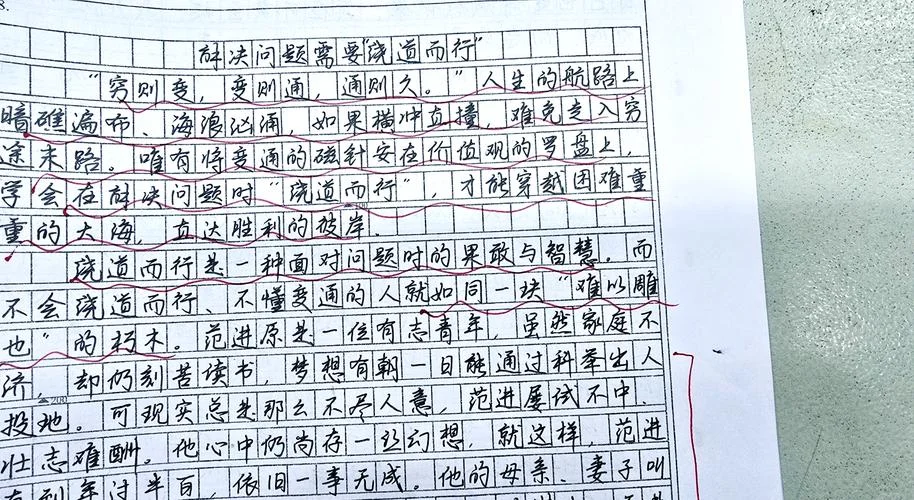 8.
解决问题需要"绕道而行"
"穷则变，变则通，通则久。"人生的航路上
暗礁遍布、海浪汹涌，如果横冲直撞，难免走入穷
途末路。唯有将变通的磁针安在价值观的罗盘上，
学会在解决问题时"绕道而行"，才能穿越困难重
重的大海，直达胜利的彼岸.
绕道而行是一种面对问题时的果敢与智慧。而
不会绕道而行、不懂变通的人就如同一块"难以雕
也"的朽木。范进原是一位有志青年，虽然家庭不
济，却仍刻苦读书，梦想有朝一日能通过科举出人
200
投地。可现实总是那么不尽人意，范进屡试不中、
壮志难酬。他心中仍尚存一丝幻想，就这样，范进
年过半百，依旧一事无成。他的母亲、妻子叫